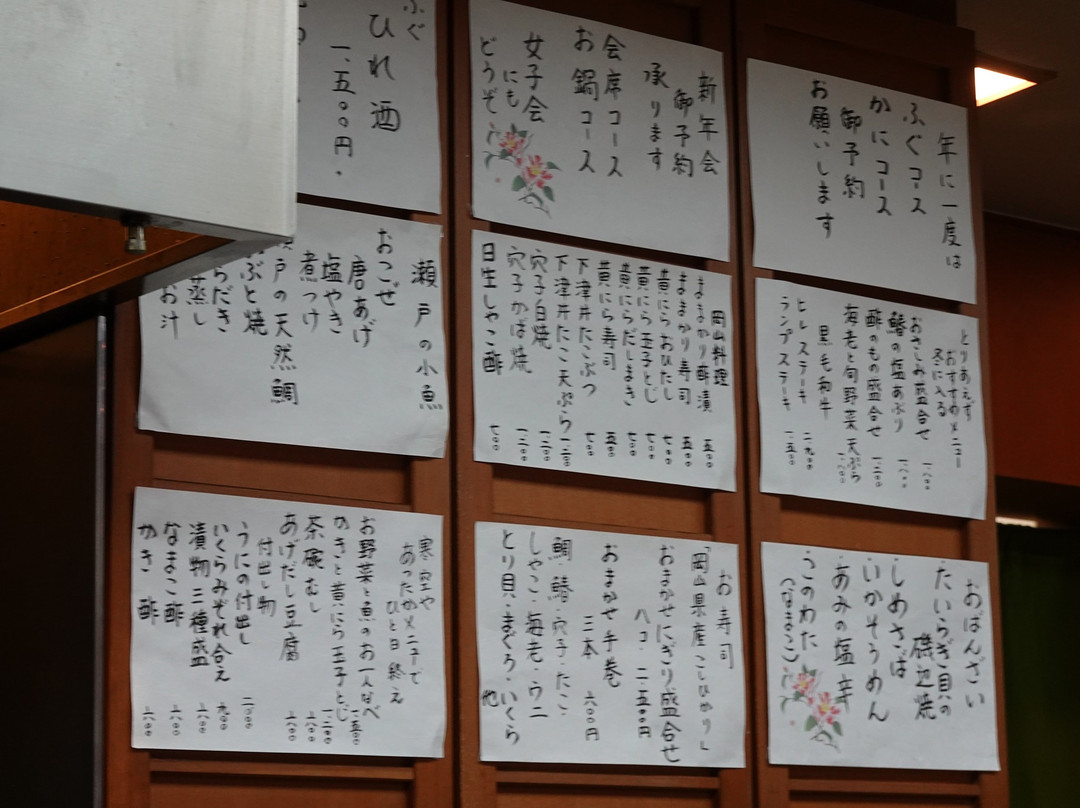 年に一度は
ふぐコース
かにコース
御予約
お願いします
新年会
御予約
承ります
会席コース
お鍋コース
女子会
にも
どうぞ
ふぐ
ひれ酒
一、五〇〇円.
とりあえず
おすすめメニュー
冬に入る
おさしみ盛合せ 一、八〇〇
鰆の塩あぶり
酢のもの盛合せ 一、二〇〇
海老と旬野菜天ぷら 一、八〇〇
黒毛和牛
ヒレステーキ 二、九〇〇
ランプステーキ 一、五〇〇
岡山料理
ままかり酢漬 五〇〇
ままかり寿司 五〇〇
黄にらおひたし 七〇〇
黄にら玉子とじ 七〇〇
黄にらだしまき 七〇〇
黄にら寿司 五〇〇
下津井たこぶつ 七〇〇
下津井たこ天ぷら 一、二〇〇
穴子白焼 一、二〇〇
穴子かば焼 一、二〇〇
日生しゃこ酢 七〇〇
瀬戸の小魚
おこぜ
唐あげ
塩やき
煮つけ
戸の天然鯛
ぶと焼
らだき
蒸し
お汁
おばんざい
たいらぎ貝の
磯辺焼
・しめさば
・いかそうめん
・あみの塩辛
・このわた
(なまこ)
お寿司
「岡山県産こしひかり」
おまかせにぎり盛合せ
八コ・二、五〇〇円
おまかせ手巻
三本 六〇〇円
鯛・鰆・穴子・たこ・
しゃこ・海老・ウニ
とり貝・まぐろ・いくら
他
寒空や
あったかメニューで
ひと日終え
お野菜と魚のお一人なべ 一、五〇〇
かきと黄にら玉子とじ 一、二〇〇
茶碗むし 八〇〇
あげだし豆腐 八〇〇
付出し物
うにの付出し 二、〇〇〇
いくらみぞれ合え 九〇〇
漬物三種盛 八〇〇
なまこ酢 八〇〇
かき酢 八〇〇